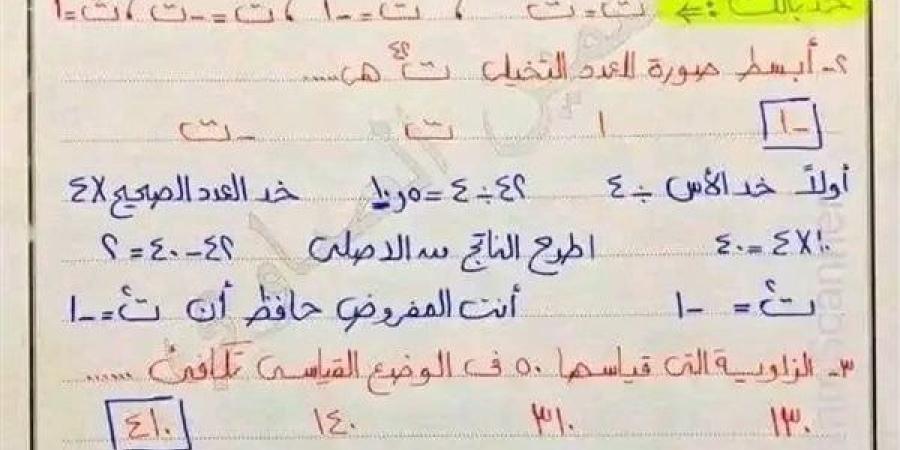 خد بالك :← ت = ت ، ت² = -١ ، ت³ = -ت ، ت⁴ = ١
٢- أبسط صورة للعدد التخيلي ت⁴² هى .....
-١ ١ ت -ت
أولاً خد الأس ÷ ٤ ٤٢ ÷ ٤ = ١٠٫٥ خد العدد الصحيح ×٤
١٠×٤ = ٤٠ اطرح الناتج من الاصلى ٤٢-٤٠ = ٢
ت² = -١ أنت المفروض حافظ أن ت² = -١
٣- الزاوية التى قياسها ٥٠ فى الوضع القياسى تكافئ ......
١٣٠ ٣١٠ ١٤٠ ٤١٠